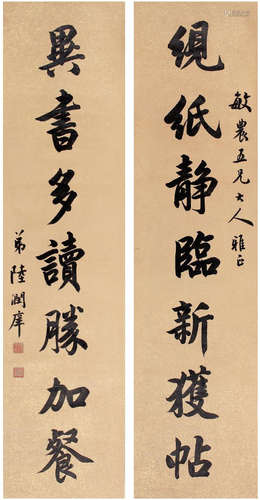 敏農五兄大人雅正
絸紙静臨新獲帖
異書多讀勝加餐
弟陸潤庠